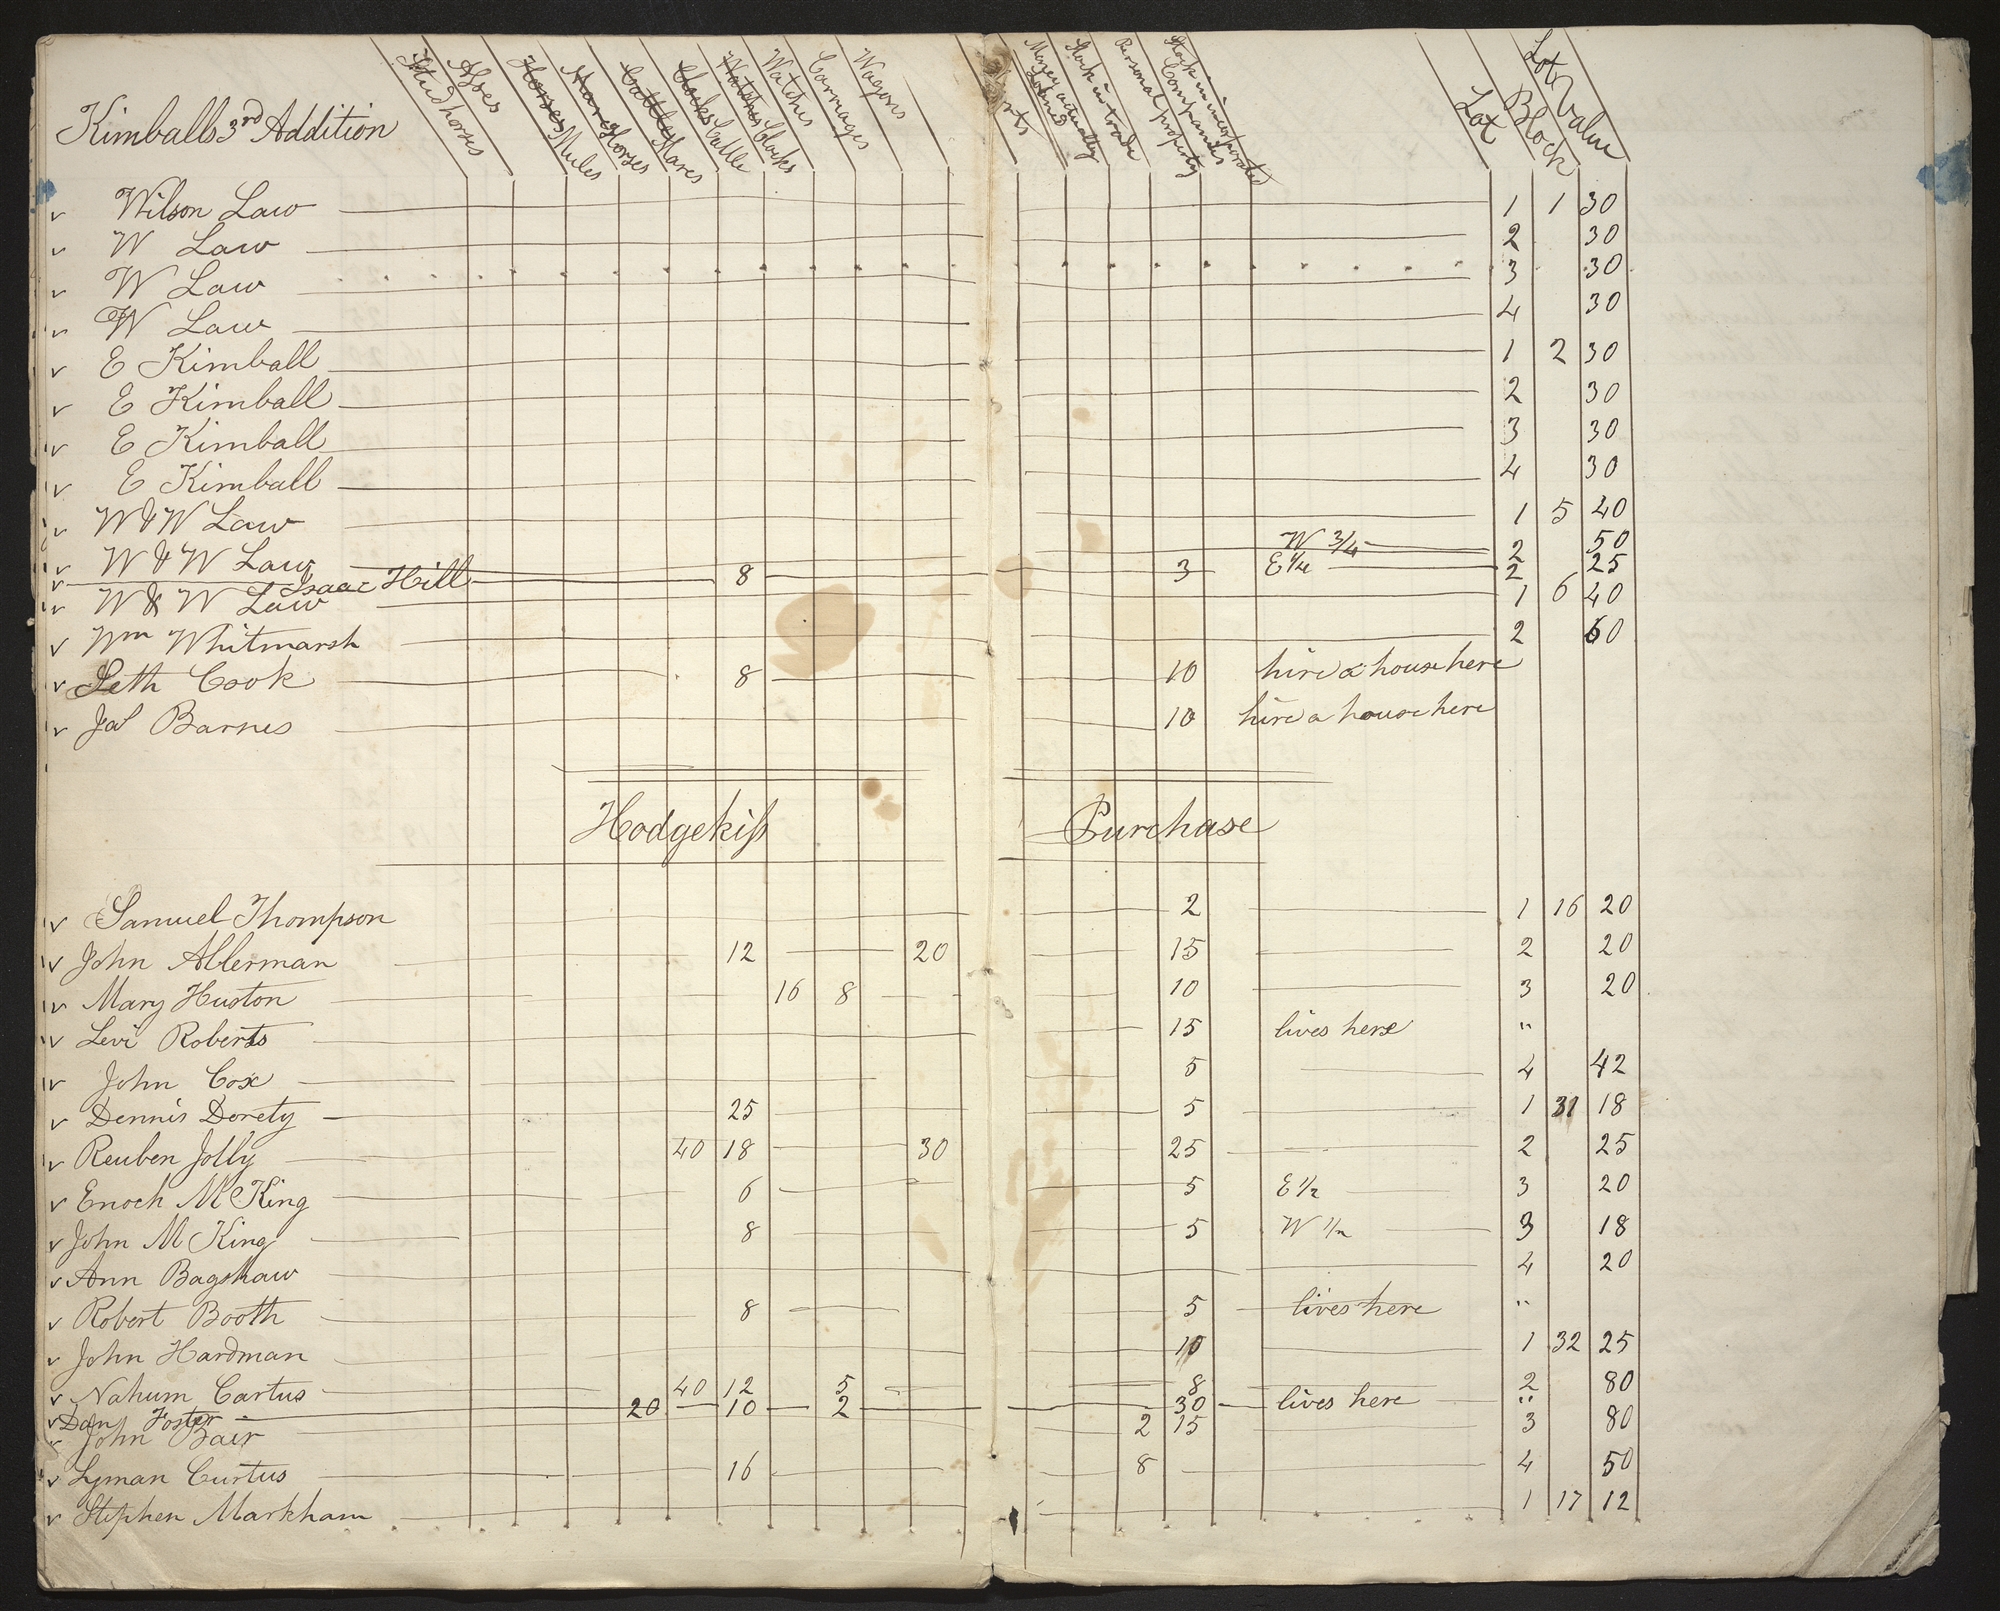 Kimballs 3rd Addition
Studhorses Asses Horses Mules Mares Horses Cattle Mares Clocks Cattle Watches Clocks Watches Carriages Wagons Money actually Loaned Stock in trade Personal property Stock in incorporated Companies Lot Block Lot Value
v Wilson Law 1 1 30
v W Law 2 30
v W Law 3 30
v W Law 4 30
v E Kimball 1 2 30
v E Kimball 2 30
v E Kimball 3 30
v E Kimball 4 30
v W & W Law 1 5 40
v W & W Law W 3/4 2 50
v Isaac Hill 8 3 E 1/4 2 25
v W & W Law 1 6 40
v Wm Whitmarsh 2 60
v Seth Cook 8 10 hire a house here
v Jas Barnes 10 hire a house here
Hodgekiss Purchase
v Samuel Thompson 2 1 16 20
v John Allerman 12 20 15 2 20
v Mary Huston 16 8 10 3 20
v Levi Roberts 15 lives here "
v John Cox 5 4 42
v Dennis Dorety 25 5 1 31 18
v Reuben Jolly 40 18 30 25 2 25
v Enoch M King 6 5 E 1/2 3 20
v John M King 8 5 W 1/2 3 18
v Ann Bagshaw 4 20
v Robert Booth 8 5 lives here "
v John Hardman 10 1 32 25
v Nahum Cartus 40 12 5 8 2 80
v Dan Foster 20 10 2 30 lives here "
v John Bair 2 15 3 80
v Lyman Curtus 16 8 4 50
v Stephen Markham 1 17 12